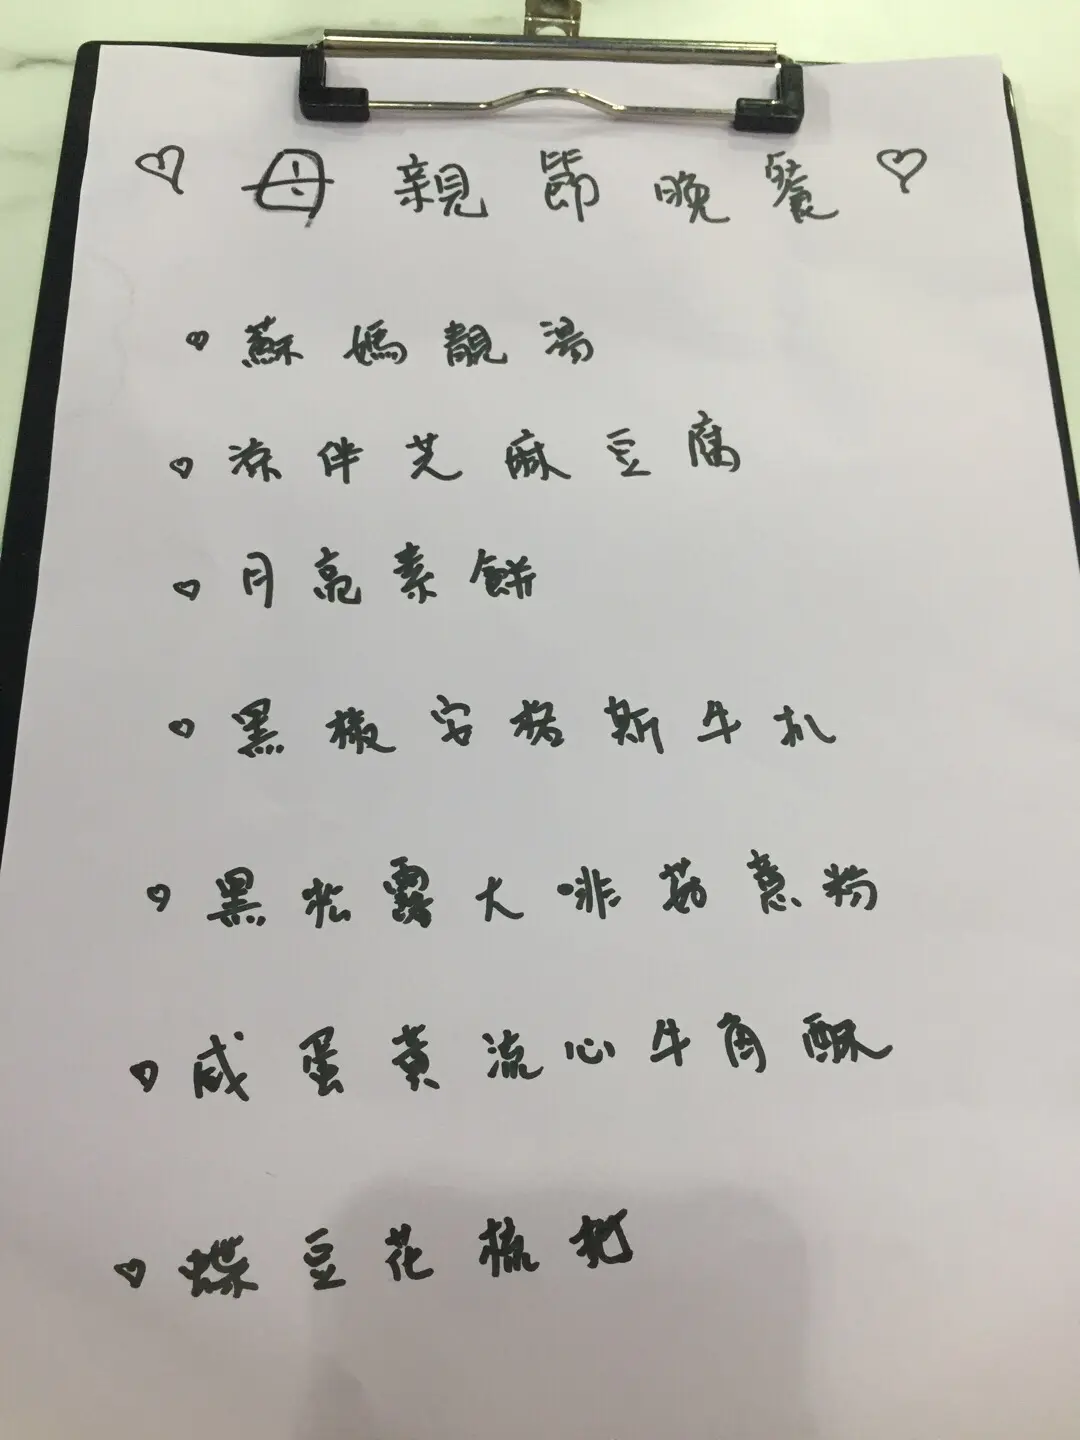 母親節晚餐
蘇媽靚湯
涼伴芝麻豆腐
月亮素餅
黑椒安格斯牛扒
黑松露大啡菇意粉
咸蛋黃流心牛角酥
蝶豆花梳把